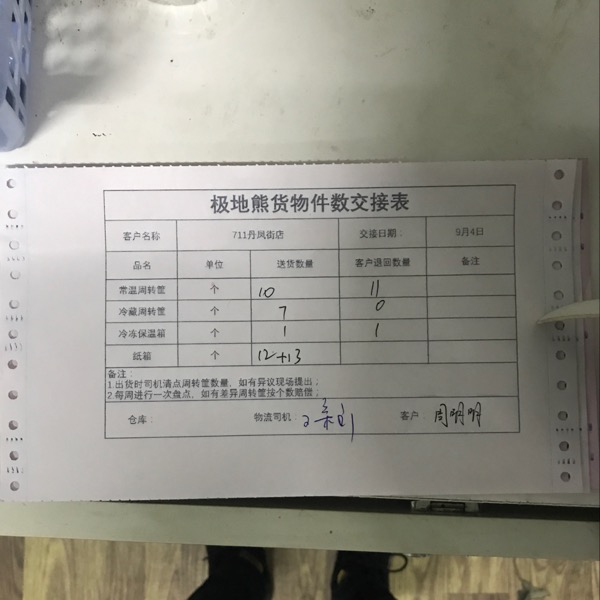 极地熊货物件数交接表
客户名称 711丹凤街店 交接日期： 9月4日
品名 单位 送货数量 客户退回数量 备注
常温周转筐 个 10 11
冷藏周转筐 个 7 0
冷冻保温箱 个 1 1
纸箱 个 12+13
备注：
1.出货时司机清点周转筐数量，如有异议现场提出；
2.每周进行一次盘点，如有差异周转筐按个数赔偿；
仓库： 物流司机： 客户： 周明明